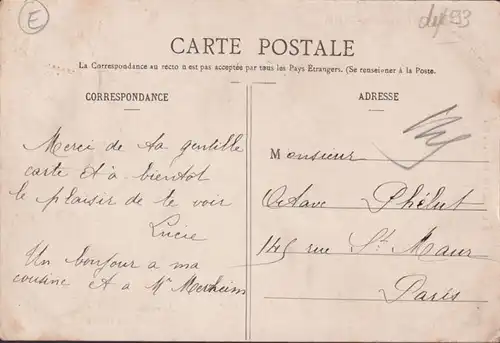 E
CARTE POSTALE
La Correspondance au recto n'est pas acceptée par tous les Pays Etrangers. (Se renseigner à la Poste.
CORRESPONDANCE
Merci de ta gentille
carte et à bientôt
le plaisir de te voir
Lucie
Un bonjour a ma
cousine et a Mr
ADRESSE
Monsieur
Octave Phélut
145 rue St Maur
Paris